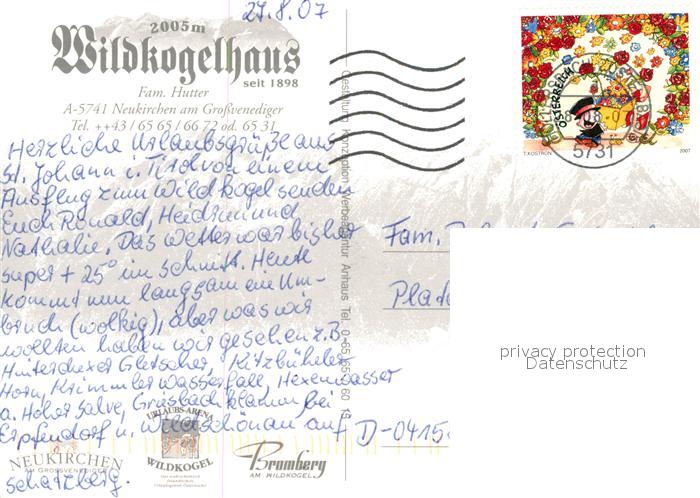 27.8.07
2005m
Wildkogelhaus
seit 1898
Fam. Hutter
A-5741 Neukirchen am Großvenediger
Tel. ++43 / 65 65 / 66 72 od. 65 31
Herzliche Urlaubsgrüße aus
St. Johann i. Tirol von einem
Ausflug zum Wildkogel senden
Euch Ronald, Heidrun und
Nathalie. Das Wetter war bisher
super + 25° im Schnitt. Heute
kommt nun langsam ein Um-
bruch (wolkig), aber was wir
wollten haben wir gesehen z.B.
Hintertuxer Gletscher, Kitzbüheler
Horn, Krimmler Wasserfall, Hexenwasser
a. Hohe Salve, Griesbachklamm bei
Erpfendorf u. Wildschönau auf
Schatzberg.
Gestaltung Konzeption Werbeagentur Anhaus Tel. 0-65 65
ÖSTERREICH
T.KOSTRON
2007
5731
Fam.
D-0415
privacy protection
Datenschutz
NEUKIRCHEN
AM GROSSVENEDIGER
URLAUBS-ARENA
WILDKOGEL
Bramberg
AM WILDKOGEL